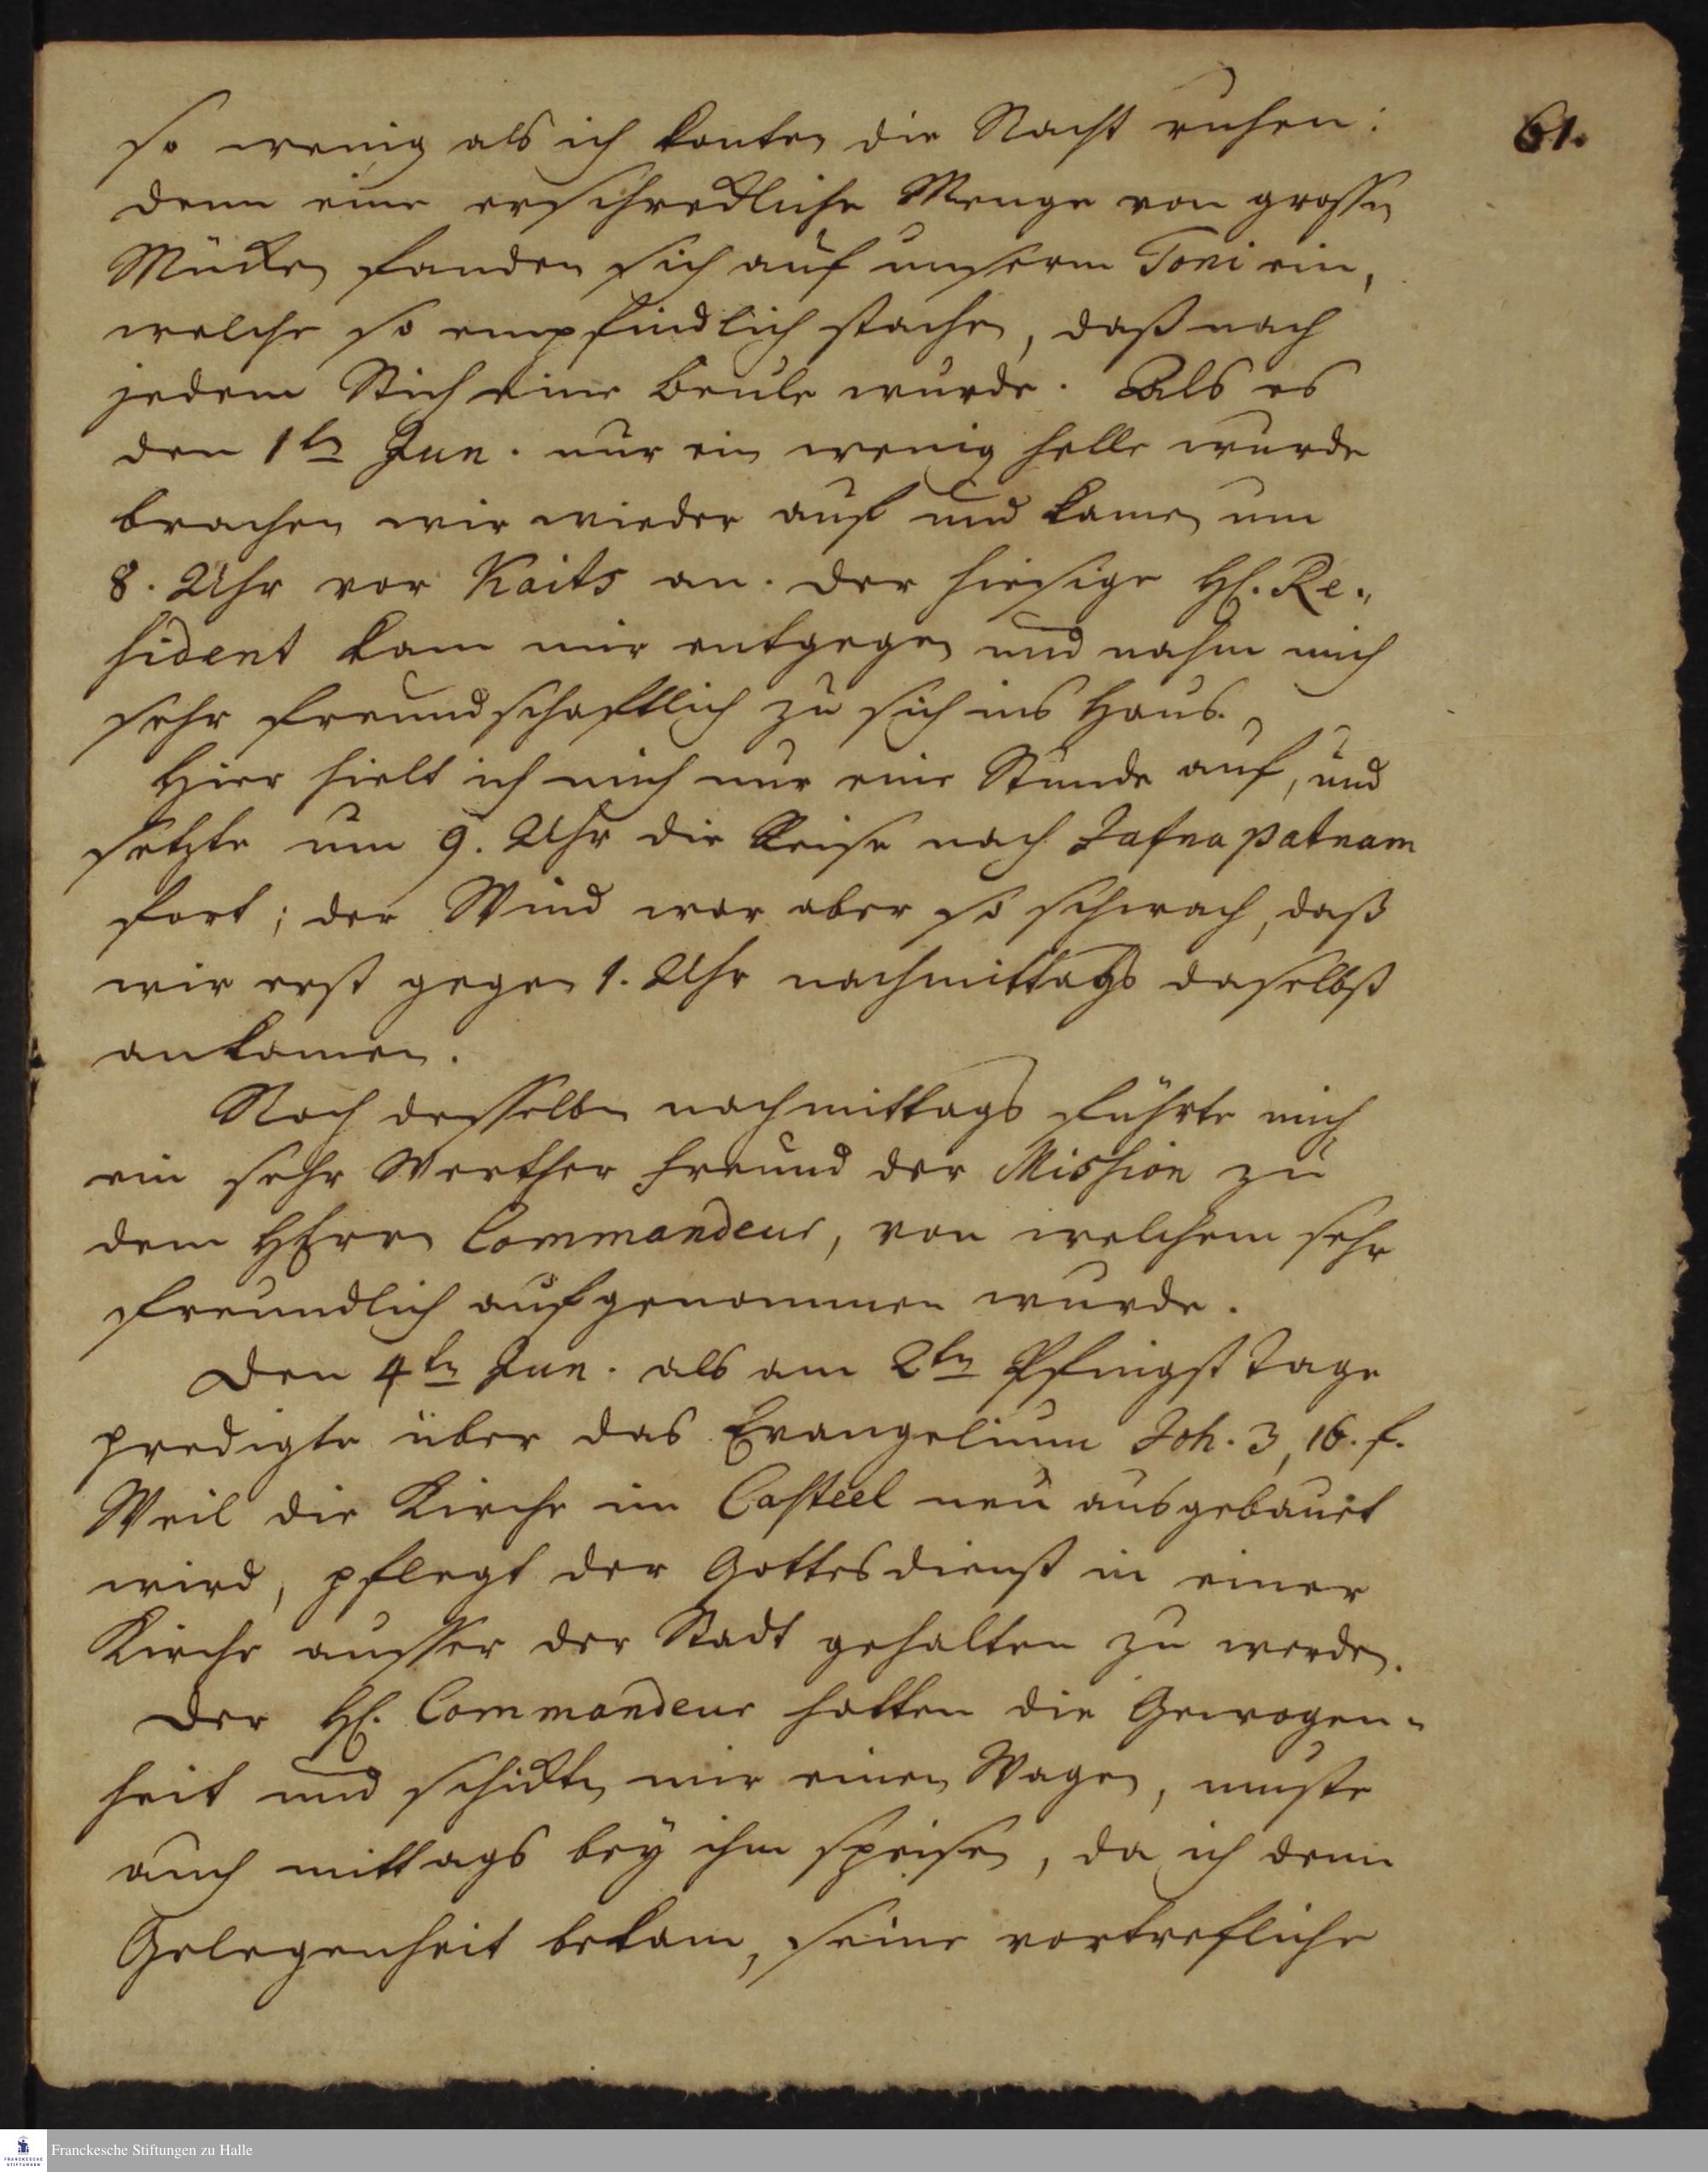 61.
so wenig als ich konten die Nacht ruhen:
denn eine erschreckliche Menge von grossen
Mücken fanden sich auf unserm Toni ein,
welche so empfindlich stachen, daß nach
jedem Stich eine Beule wurde. Als es
den 1ten Jun. nur ein wenig helle wurde
brachen wir wieder auf und kamen um
8. Uhr vor Kaits an. der hiesige H. Re-
sident kam mir entgegen und nahm mich
sehr freundschaftlich zu sich ins Haus.
Hier hielt ich mich nur eine Stunde auf, und
setzte um 9. Uhr die Reise nach Jafnapatnam
fort; der Wind war aber so schwach, daß
wir erst gegen 1. Uhr nachmittags daselbst
ankamen.
Noch desselben nachmittags führte mich
ein sehr Werther Freund der Mission zu
dem HErrn Commandeur, von welchem sehr
freundlich aufgenommen wurde.
Den 4ten Jun. als am 2ten Pfingst Tage
predigte über das Evangelium Joh. 3, 16. f.
Weil die Kirche im Casteel neu ausgebauet
wird, pflegt der Gottesdienst in einer
Kirche ausser der Stadt gehalten zu werden.
Der H. Commandeur hatten die Gewogen-
heit und schickten mir einen Wagen, muste
auch mittags bey ihm speisen, da ich denn
Gelegenheit bekam, seine vortrefliche
Franckesche Stiftungen zu Halle
FRANCKESCHE
STIFTUNGEN